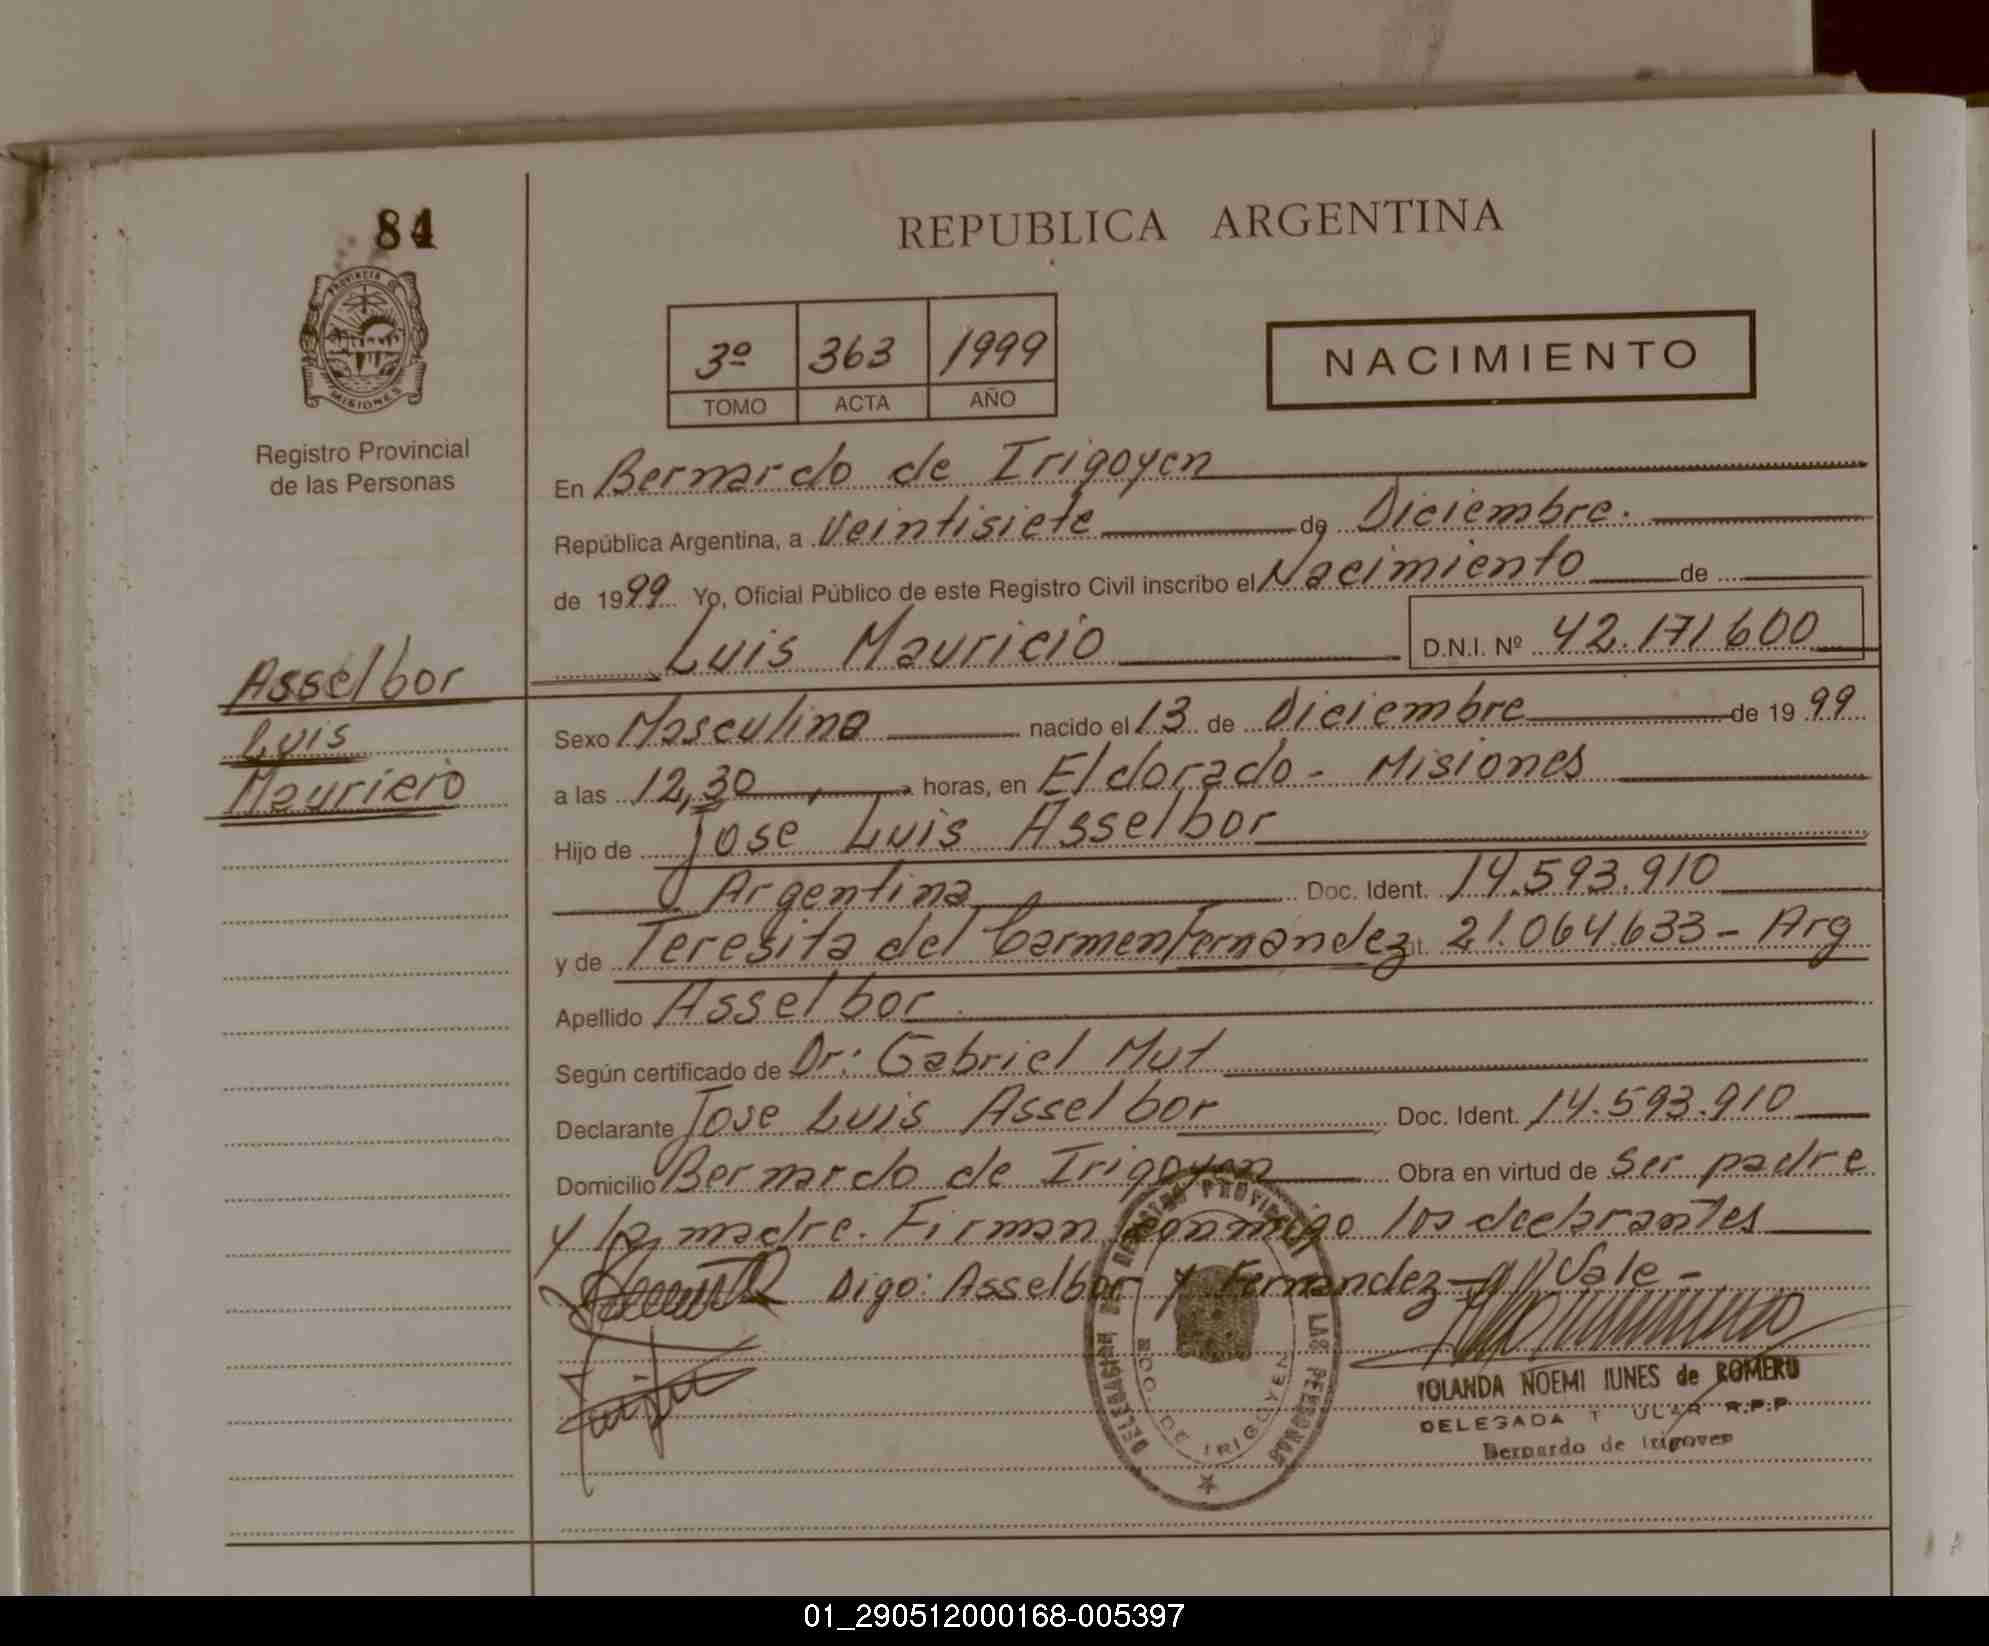 84
REPUBLICA ARGENTINA
PROVINCIA DE
MISIONES
Registro Provincial
de las Personas
3º 363 1999
TOMO ACTA AÑO
NACIMIENTO
En Bernardo de Irigoyen
República Argentina, a Veintisiete de Diciembre.
de 1999 Yo, Oficial Público de este Registro Civil inscribo el Nacimiento de
Luis Mauricio D.N.I. Nº 42.171600
Asselbor
Luis
Mauricio
Sexo Masculino nacido el 13 de Diciembre de 1999
a las 12,30 horas, en Eldorado - Misiones
Hijo de Jose Luis Asselbor
Argentina Doc. Ident. 14.593.910
y de Teresita del Carmen Fernandez 21.064.633 - Arg
Apellido Asselbor
Según certificado de Dr: Gabriel Mut
Declarante Jose Luis Asselbor Doc. Ident. 14.593.910
Domicilio Bernardo de Irigoyen Obra en virtud de ser padre
y la madre. Firman conmigo los declarantes
Digo: Asselbor y Fernandez - Vale -
DELEGACION DEL REGISTRO PROVINCIAL DE LAS PERSONAS
BDO. DE IRIGOYEN
YOLANDA NOEMI IUNES de ROMERO
DELEGADA T ULAR R.P.P
Bernardo de Irigoyen
01_290512000168-005397